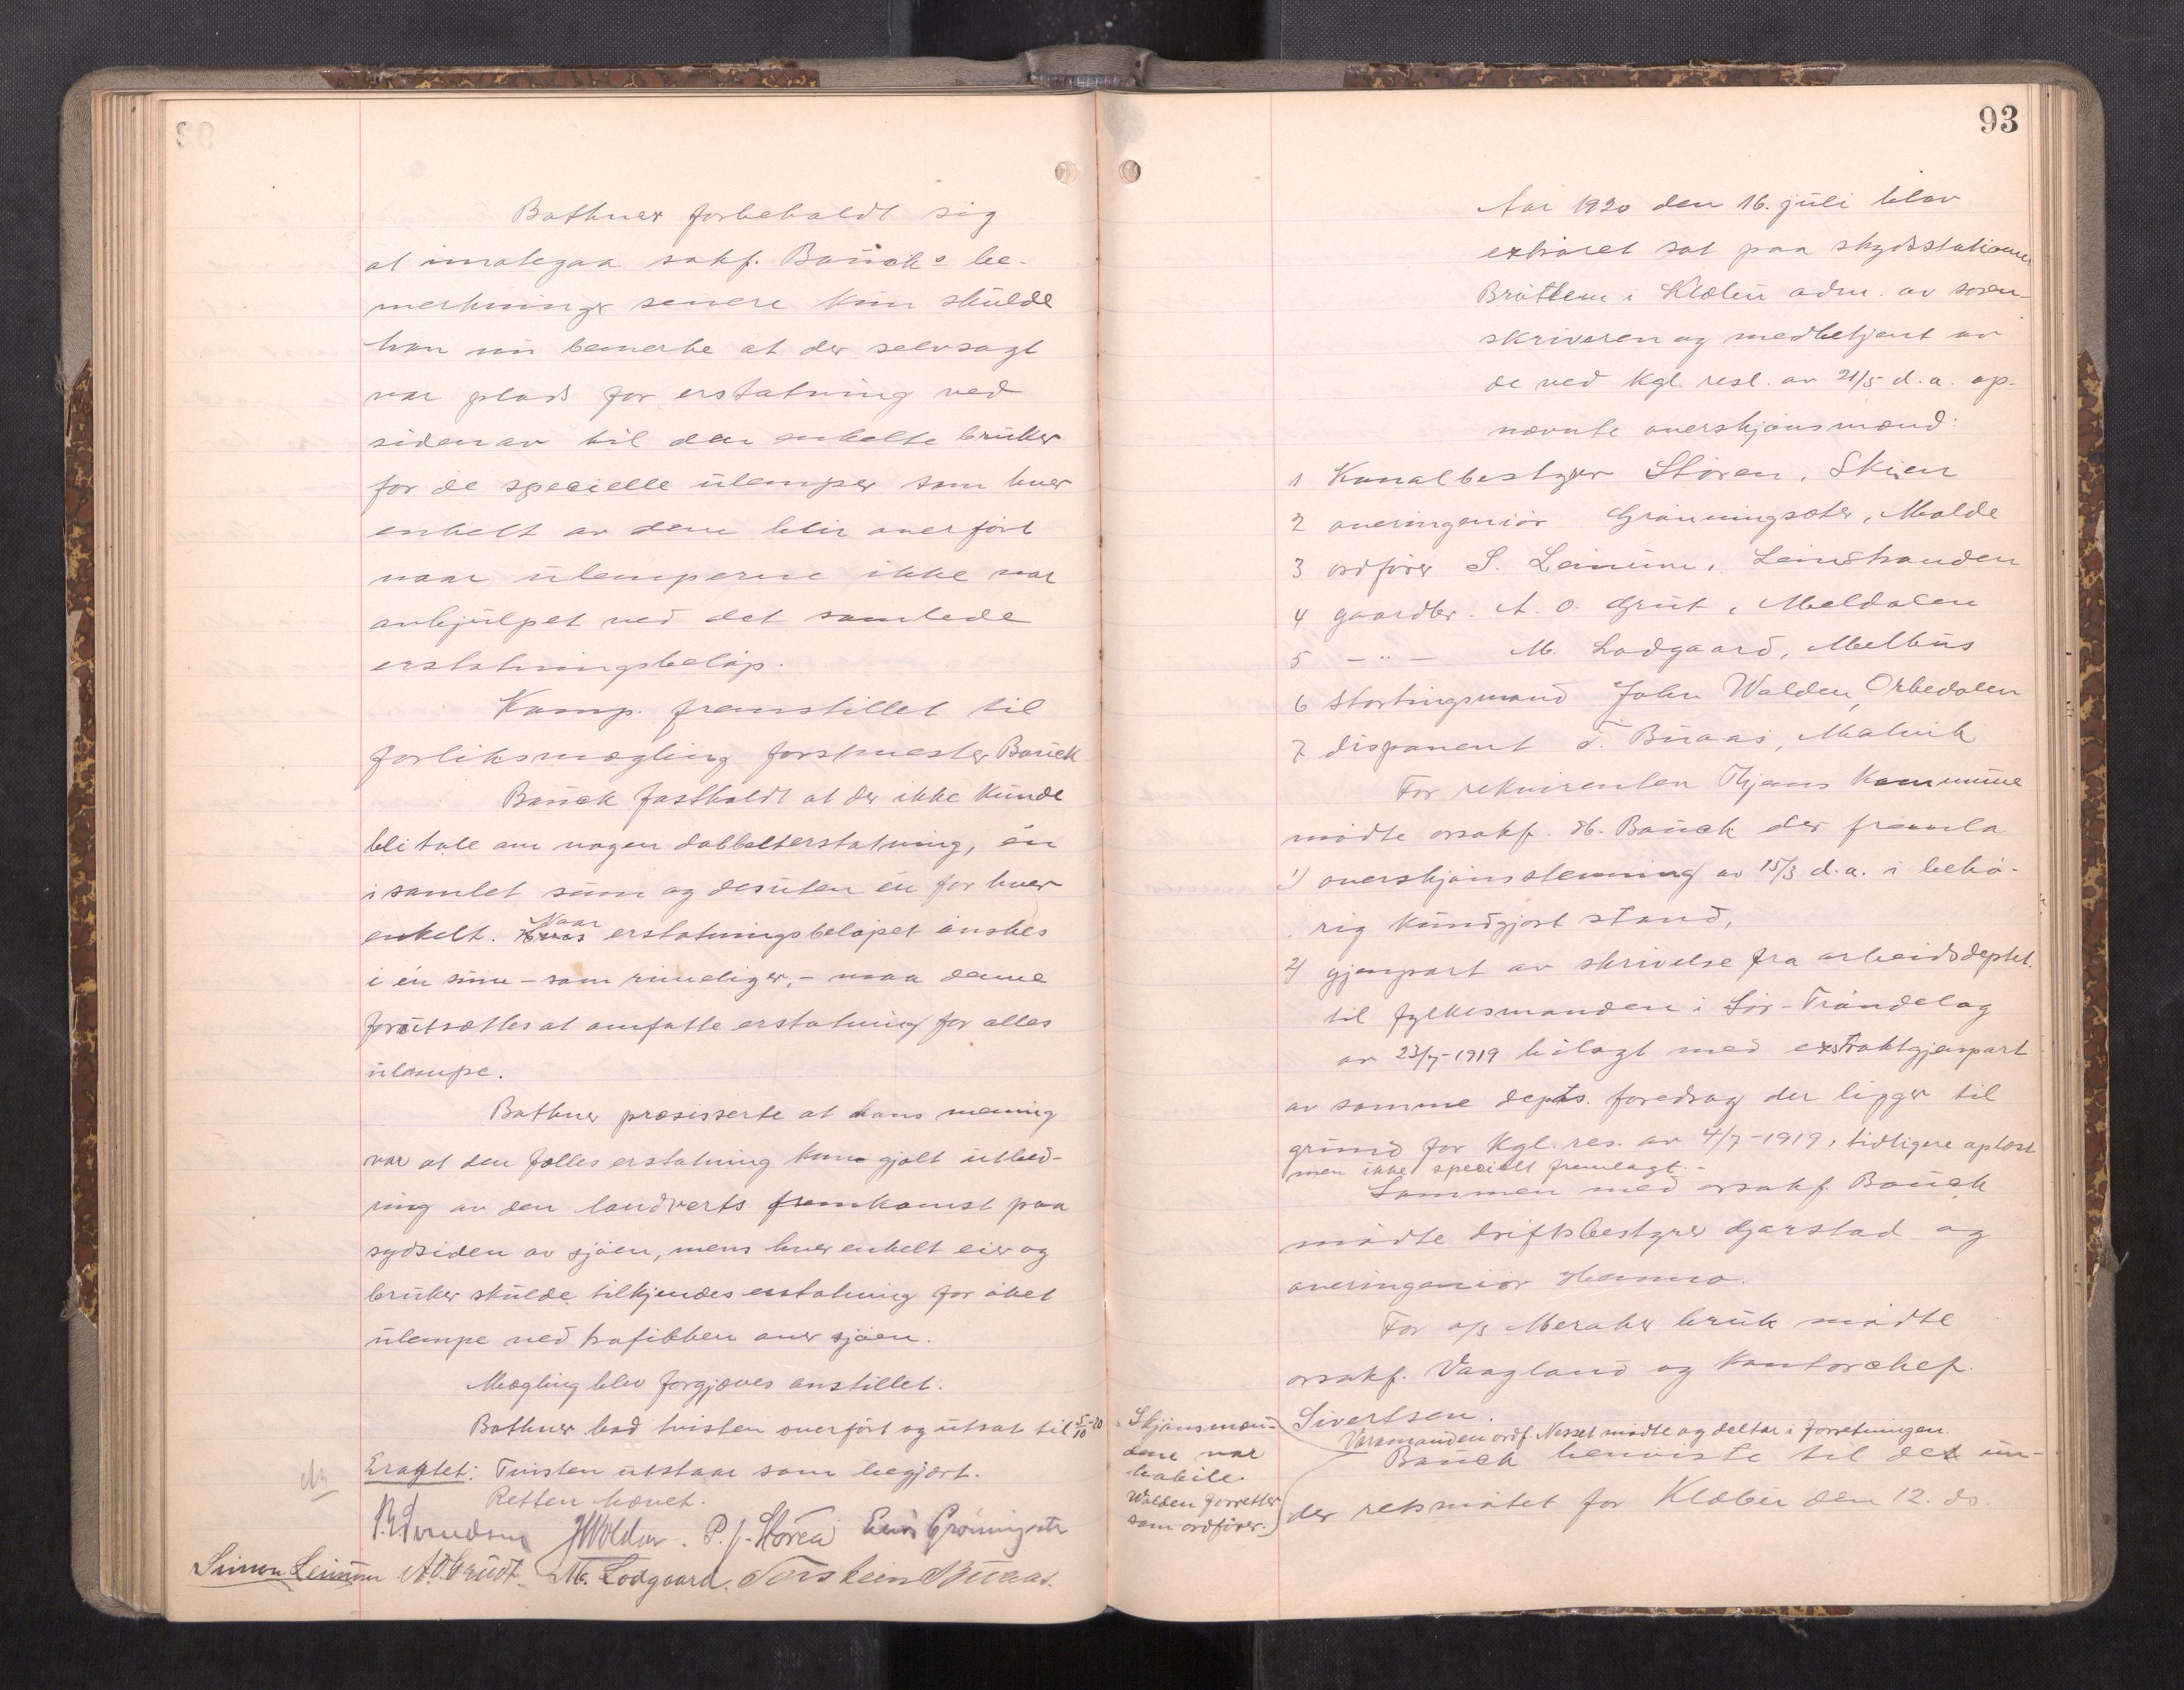 Bathner forbeholdt sig
at imøtegaa sakf. Bauck's be-
merkninger senere kun skulde
han nu bemerke at der selvsagt
var plads for erstatning ved
siden av til den enkelte bruker
for de specielle ulemper som hver
enkelt av dem blir overført
naar ulemperne ikke var
avhjulpet ved det samlede
erstatningsbeløp.
Komp. fremstillet til
forliksmægling forstmester Bauck
Bauck fastholdt at der ikke kunde
bli tale om nogen dobbelterstatning, én
i samlet sum og desuten én for hver
enkelt. Naar erstatningsbeløpet ønskes
i én sum – som rimeligere, – maa denne
forutsættes at omfatte erstatning for alles
ulempe.
Bathner præsisserte at hans mening
var at den fælles erstatning kun gjalt utbed-
ring av den landverts fremkomst paa
sydsiden av sjøen, mens hver enkelt eier og
bruker skulde tilkjendes erstatning for øket
ulempe ved trafikken over sjøen.
Mægling blev forgjæves anstillet.
Bathner bad tvisten overført og utsat til 5/10-20
Eragtet: Tvisten utstaar som begjært.
Retten hævet.
JWolden. P. J. Støren Einar Grønningsæter
Simon Leinum A.O. Grudt. M. Lodgaard. Torstein Buaas.
93
Aar 1920 den 16. juli blev
extraret sat paa skydsstationen
Brøttem i Klæbu adm. av soren-
skriveren og medbetjent av
de ved Kgl. resl. av 21/5 d.a. op-
nævnte overskjønsmænd:
1 Kanalbestyrer Støren, Skien
2 overingeniør Grønningsæter, Molde
3 ordfører S. Leinum, Leinstranden
4 gaardbr. A. O. Grut, Meldalen
5 – " – M. Lodgaard, Melhus
6 Stortingsmand John Wolden, Orkedalen
7 disponent T. Buaas, Malvik
For rekvirenten Tr.hjems Kommune
møtte orsakf. H. Bauck der fremla
1) overskjønstevning av 15/3 d.a. i behø-
rig kundgjort stand,
2) gjenpart av skrivelse fra arbeidsdeptet.
til fylkesmanden i Sør-Trøndelag
av 23/7-1919 bilagt med extraktgjenpart
av samme depts. foredrag der ligger til
grund for Kgl. res. av 4/7-1919, tidligere oplæst
men ikke specielt fremlagt. –
Sammen med orsakf. Bauck
møtte driftsbestyrer Gjarstad og
overingeniør
For a/s Meraker bruk møtte
orsakf. Vaagland og kontorchef.
Sivertsen.
Varamanden ordf. Nesset møtte og deltar i forretningen.
Bauck henviste til det un-
der retsmøtet for Klæbu den 12. ds.
Skjønsmæn-
dene var
habile.
Wolden forretter
som ordfører.